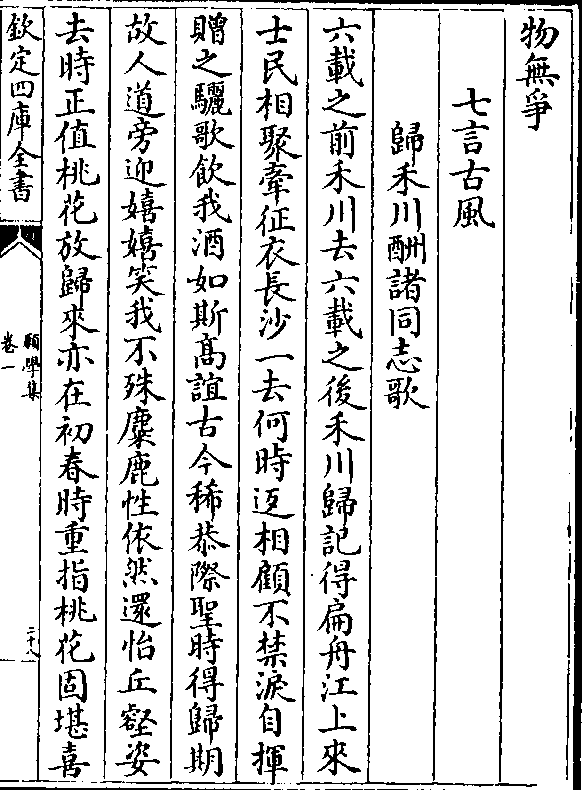 物無爭
七言古風
歸禾川酬諸同志歌
六載之前禾川去六載之後禾川歸記得扁舟江上來
士民相聚牽征衣長沙一去何時返相顧不禁淚自揮
贈之驪歌飲我酒如斯高誼古今稀恭際聖時得歸期
故人道旁迎嬉嬉笑我不殊麋鹿性依然還怡丘壑姿
去時正值桃花放歸來亦在初春時重指桃花固堪喜
欽定四庫全書
願學集
卷一
二十八